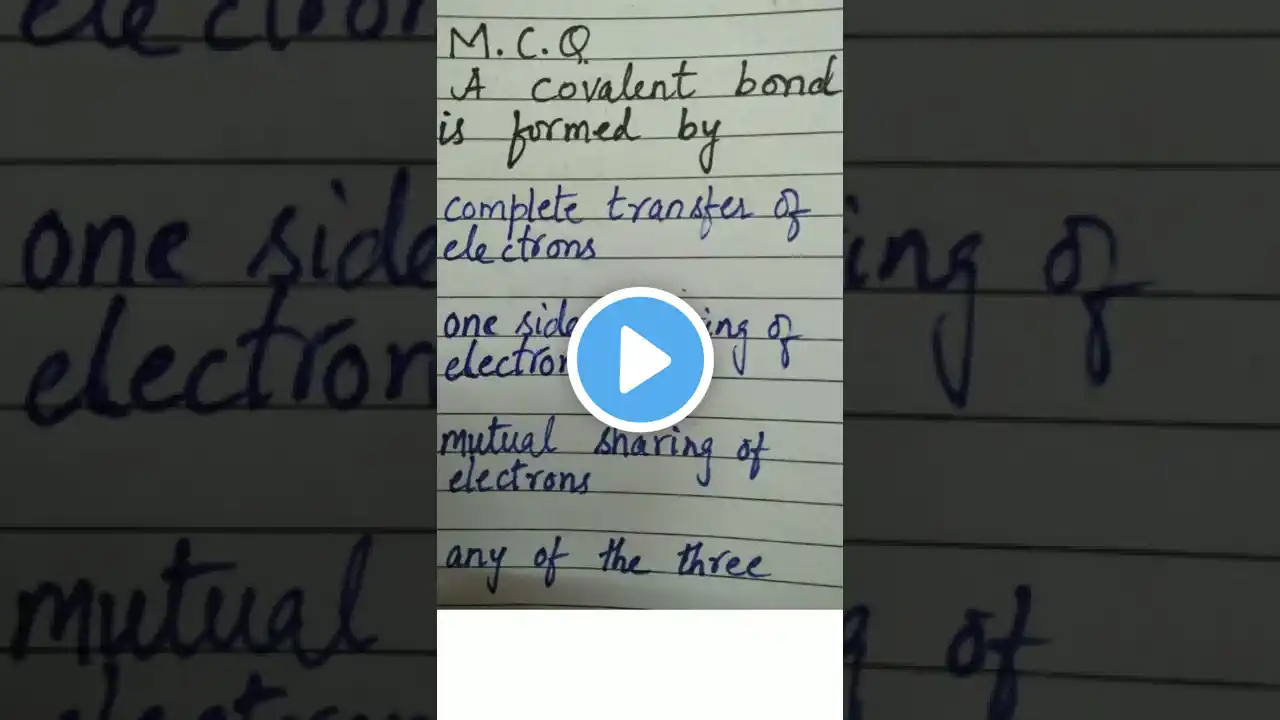 M.C.Q
A covalent bond
is formed by
complete transfer of
electrons
one side ing of
electron
mutual sharing of
electrons
any of the three